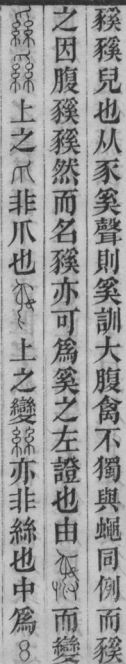 豯豯兒也从豕奚聲則奚訓大腹禽不獨與蠅同例而豯
之因腹豯豯然而名豯亦可爲奚之左證也由而變
上之爪非爪也上之變糸亦非絲也中爲8